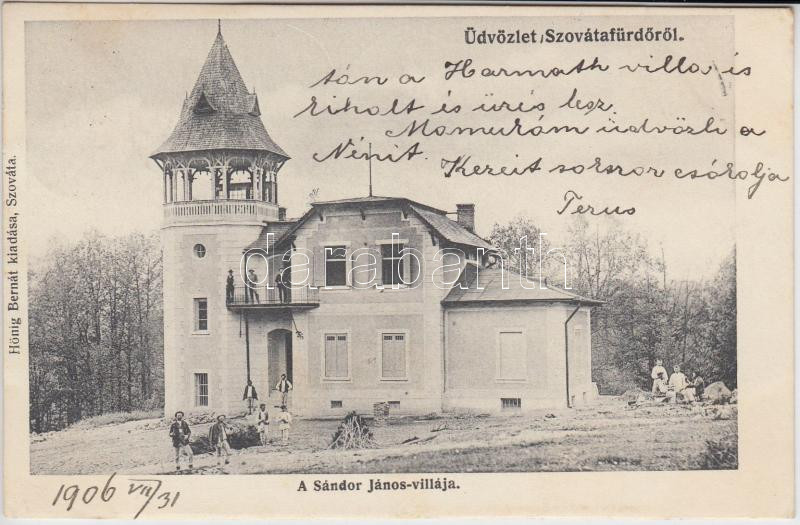 Üdvözlet Szovátafürdőről.
tán a Harmath villa is
kiholt és üres lesz
Mamukám üdvözli a
Nénit.
Kezeit sokszor csókolja
Terus
Hönig Bernát kiadása, Szováta.
darabanth
A Sándor János-villája.
1906 VII/31